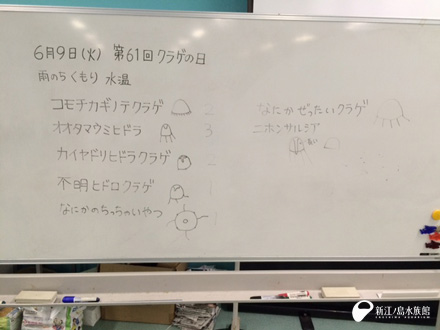 6月9日(火) 第61回クラゲの日
雨のちくもり 水温
コモチカギノテクラゲ 2
オオタマウミヒドラ 3
カイヤドリヒドラクラゲ 2
不明ヒドロクラゲ 1
なにかのちっちゃいやつ 1
なにかぜったいクラゲ
ニホンサルシア
新江ノ島水族館
ENOSHIMA AQUARIUM